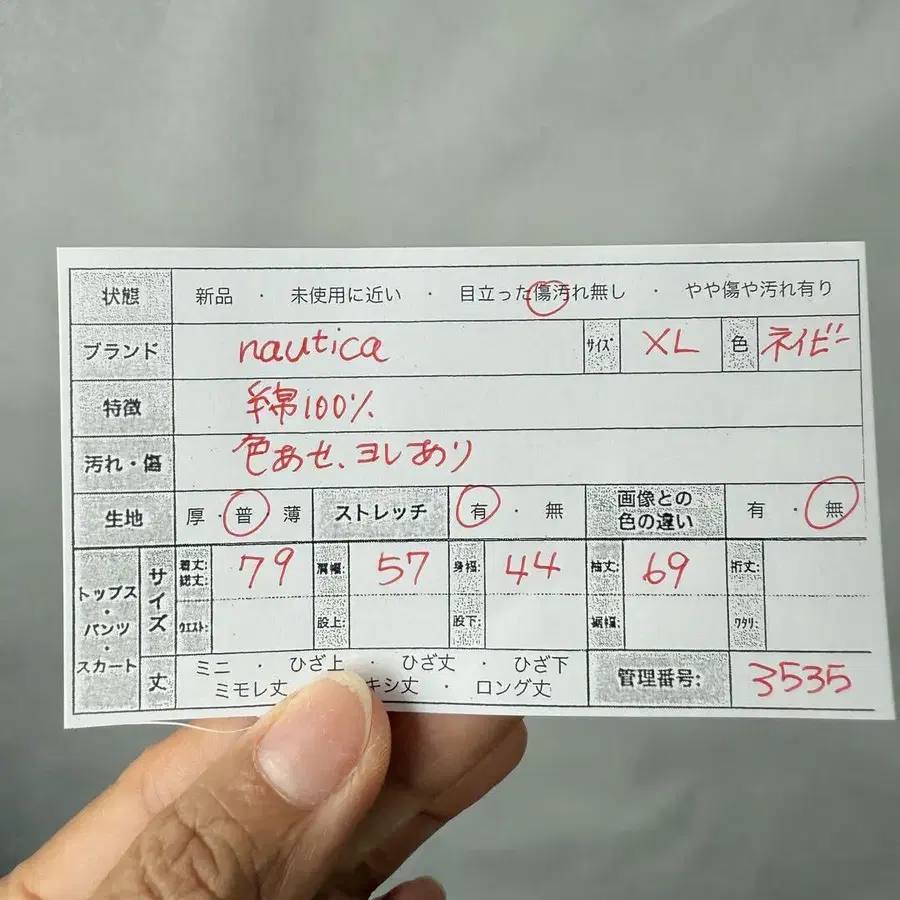 状態 新品 ・ 未使用に近い ・ 目立った傷汚れ無し ・ やや傷や汚れ有り
ブランド nautica サイズ XL 色 ネイビー
特徴 綿100%
汚れ・傷 色あせ、ヨレあり
生地 厚・普 薄 ストレッチ 有 ・ 無 画像との色の違い 有 ・ 無
トップス・パンツ・スカート サイズ 着丈:総丈: 79 肩幅: 57 身幅: 44 袖丈: 69 裄丈:
ウエスト: 股上: 股下: 裾幅: ワタリ:
丈 ミニ ・ ひざ上 ・ ひざ丈 ・ ひざ下
ミモレ丈 キシ丈 ・ ロング丈
管理番号: 3535